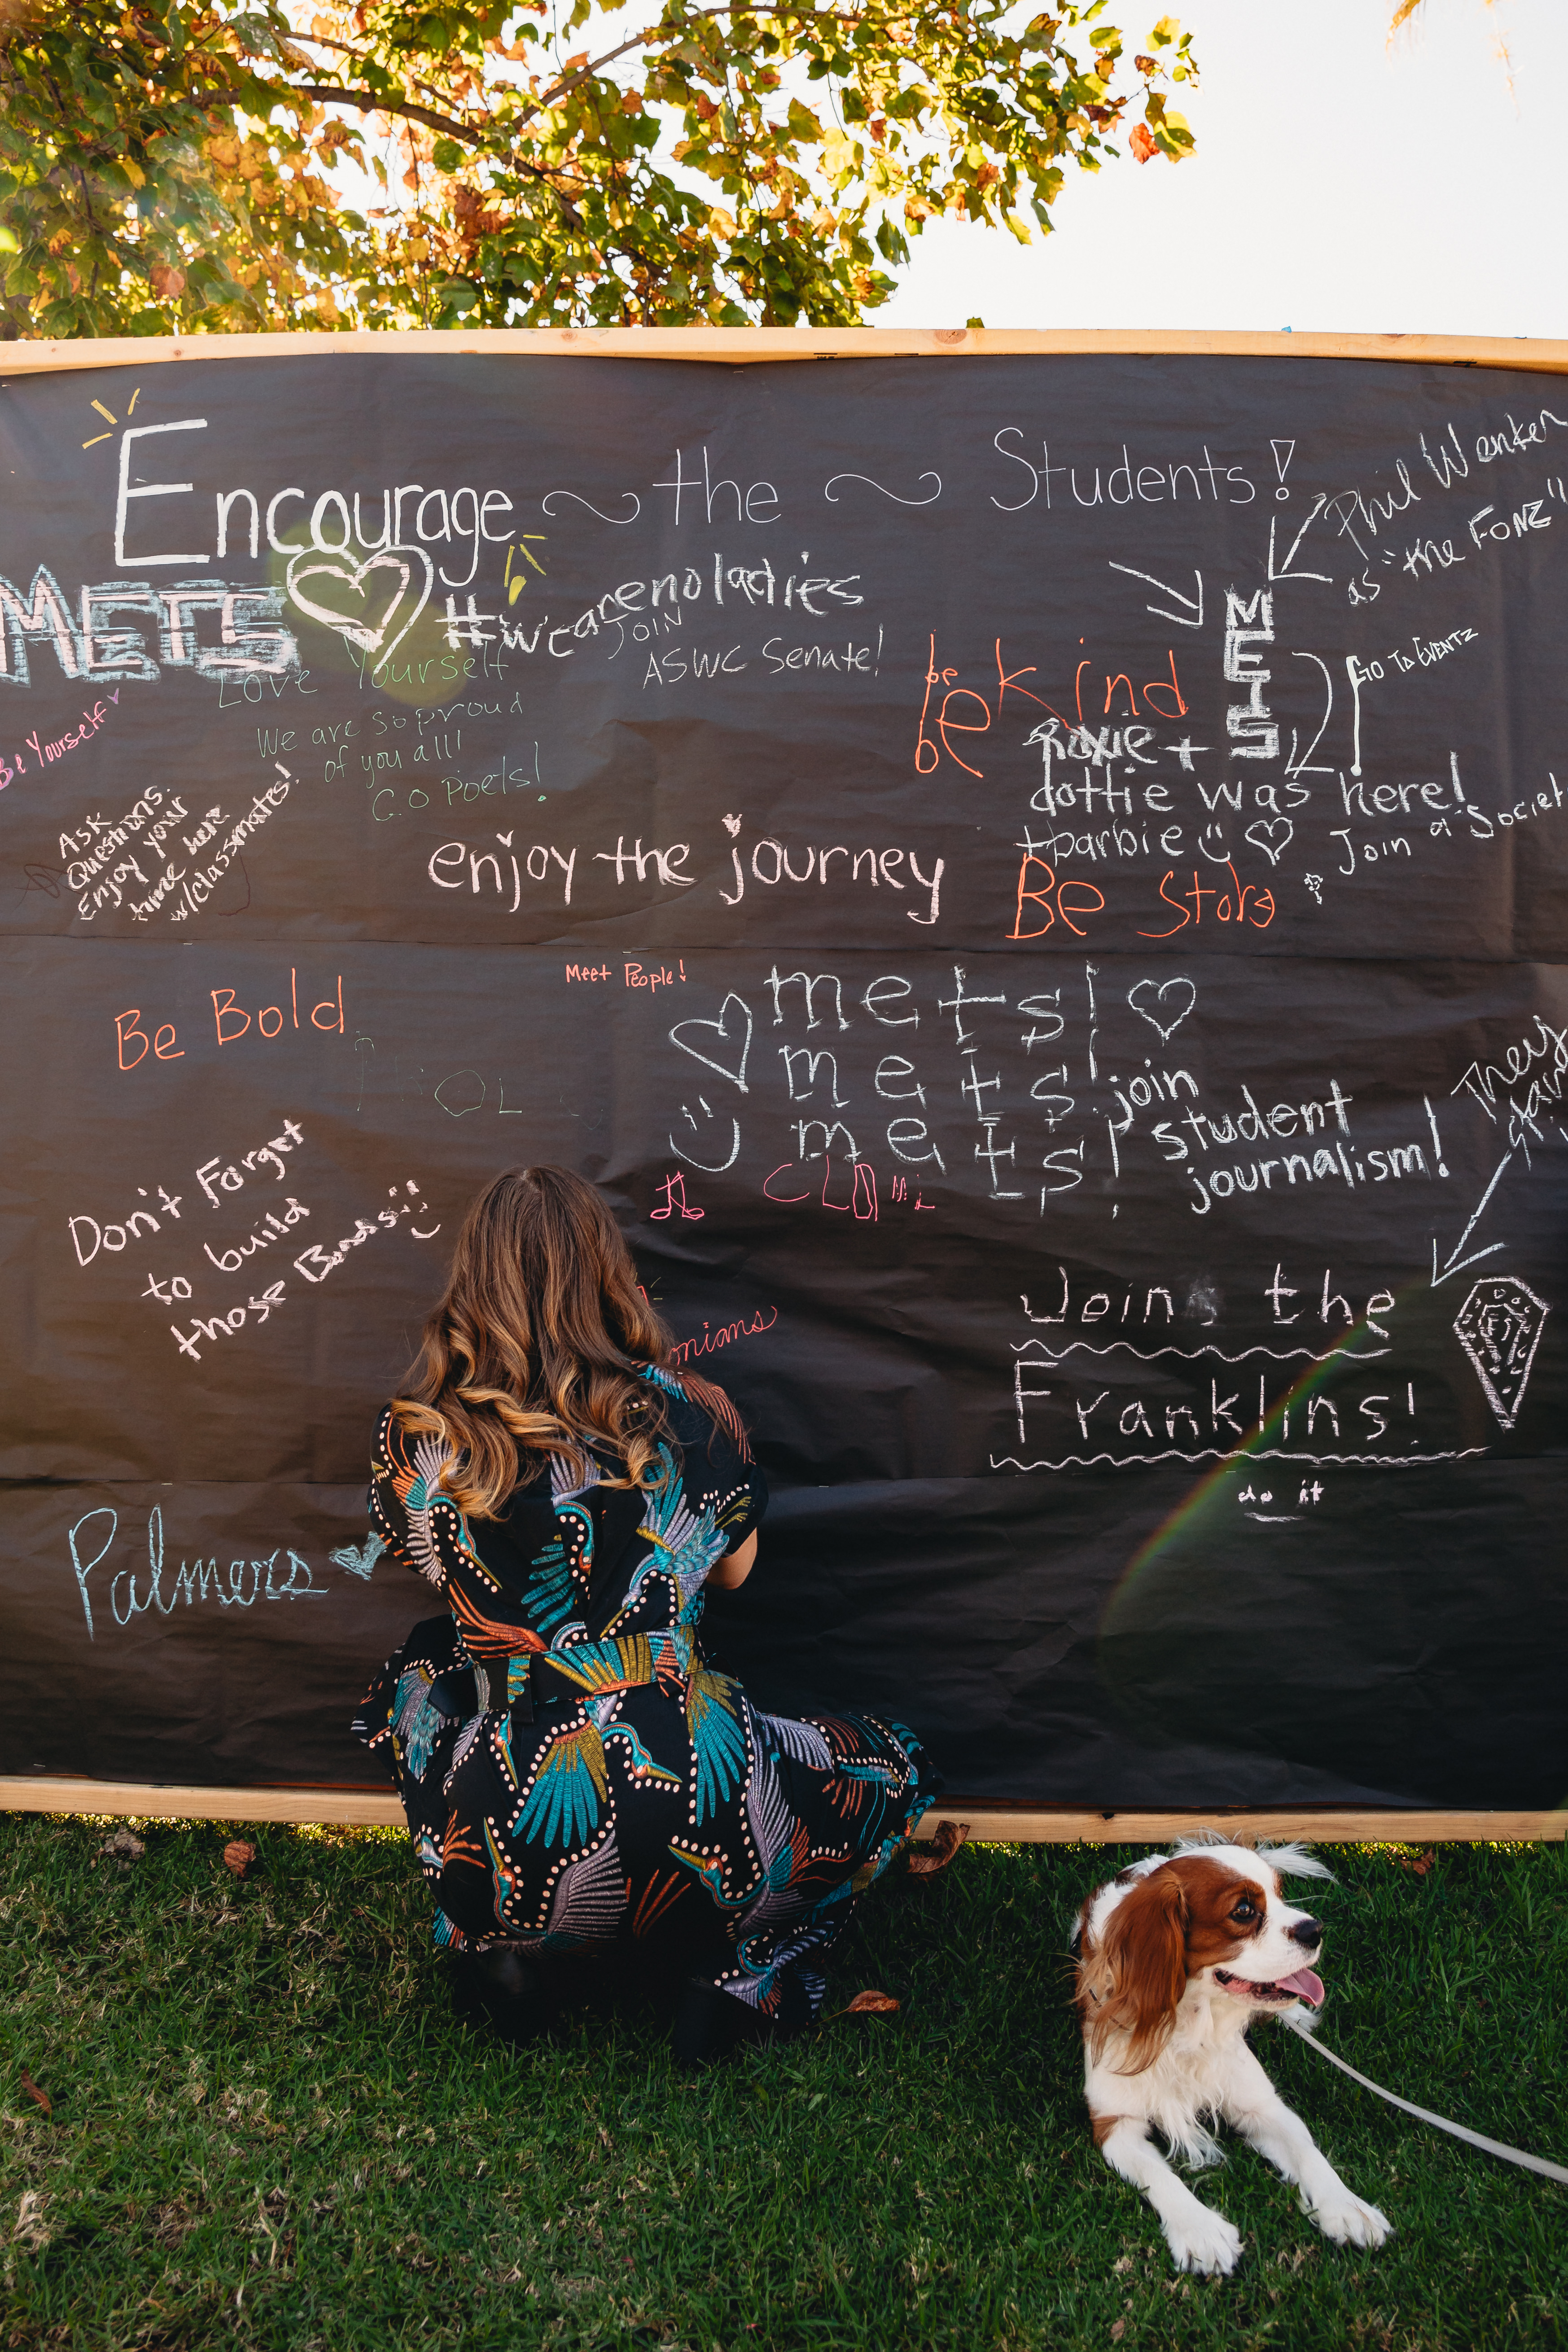 Encourage ~ the ~ Students!
Phil Wenker
as "the FONZ"
METS
#wearenoladies
JOIN
ASWC Senate!
Love Yourself
We are so proud
of you all!
GO Poets!
Be Yourself
Ask
Questions.
Enjoy your
time here
w/classmates!
be
be kind
METS
GO TO EVENTZ
roxie +
dottie was here!
+barbie
Join a Societ
enjoy the journey
Be
Be Bold
Meet People!
mets!
mets!
mets!
join
student
journalism!
They
Don't Forget
to build
those Bonds
onians
Join the
Franklins!
do it
Palmers